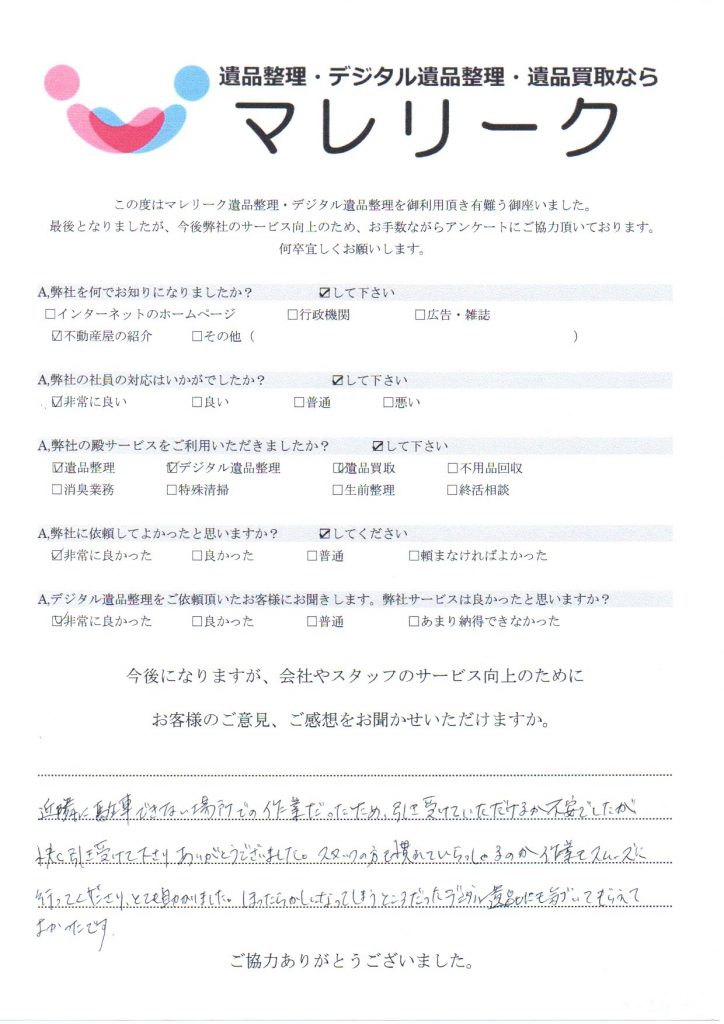 遺品整理・デジタル遺品整理・遺品買取なら
マレリーク
この度はマレリーク遺品整理・デジタル遺品整理を御利用頂き有難う御座いました。
最後となりましたが、今後弊社のサービス向上のため、お手数ながらアンケートにご協力頂いております。
何卒宜しくお願いします。
A,弊社を何でお知りになりましたか？ ☑して下さい
☐インターネットのホームページ ☐行政機関 ☐広告・雑誌
☑不動産屋の紹介 ☐その他（ ）
A,弊社の社員の対応はいかがでしたか？ ☑して下さい
☑非常に良い ☐良い ☐普通 ☐悪い
A,弊社の殿サービスをご利用いただきましたか？ ☑して下さい
☑遺品整理 ☑デジタル遺品整理 ☑遺品買取 ☐不用品回収
☐消臭業務 ☐特殊清掃 ☐生前整理 ☐終活相談
A,弊社に依頼してよかったと思いますか？ ☑してください
☑非常に良かった ☐良かった ☐普通 ☐頼まなければよかった
A,デジタル遺品整理をご依頼頂いたお客様にお聞きします。弊社サービスは良かったと思いますか？
☑非常に良かった ☐良かった ☐普通 ☐あまり納得できなかった
今後になりますが、会社やスタッフのサービス向上のために
お客様のご意見、ご感想をお聞かせいただけますか。
近隣に駐車できない場所での作業だったため、引き受けていただけるか不安でしたが
快く引き受けて下さりありがとうございました。スタッフの方も慣れていらっしゃるのか作業もスムーズに
行ってくださり、とても助かりました。ほったらかしになってしまうところだったデジタル遺品にも気づいてもらえて
よかったです。
ご協力ありがとうございました。